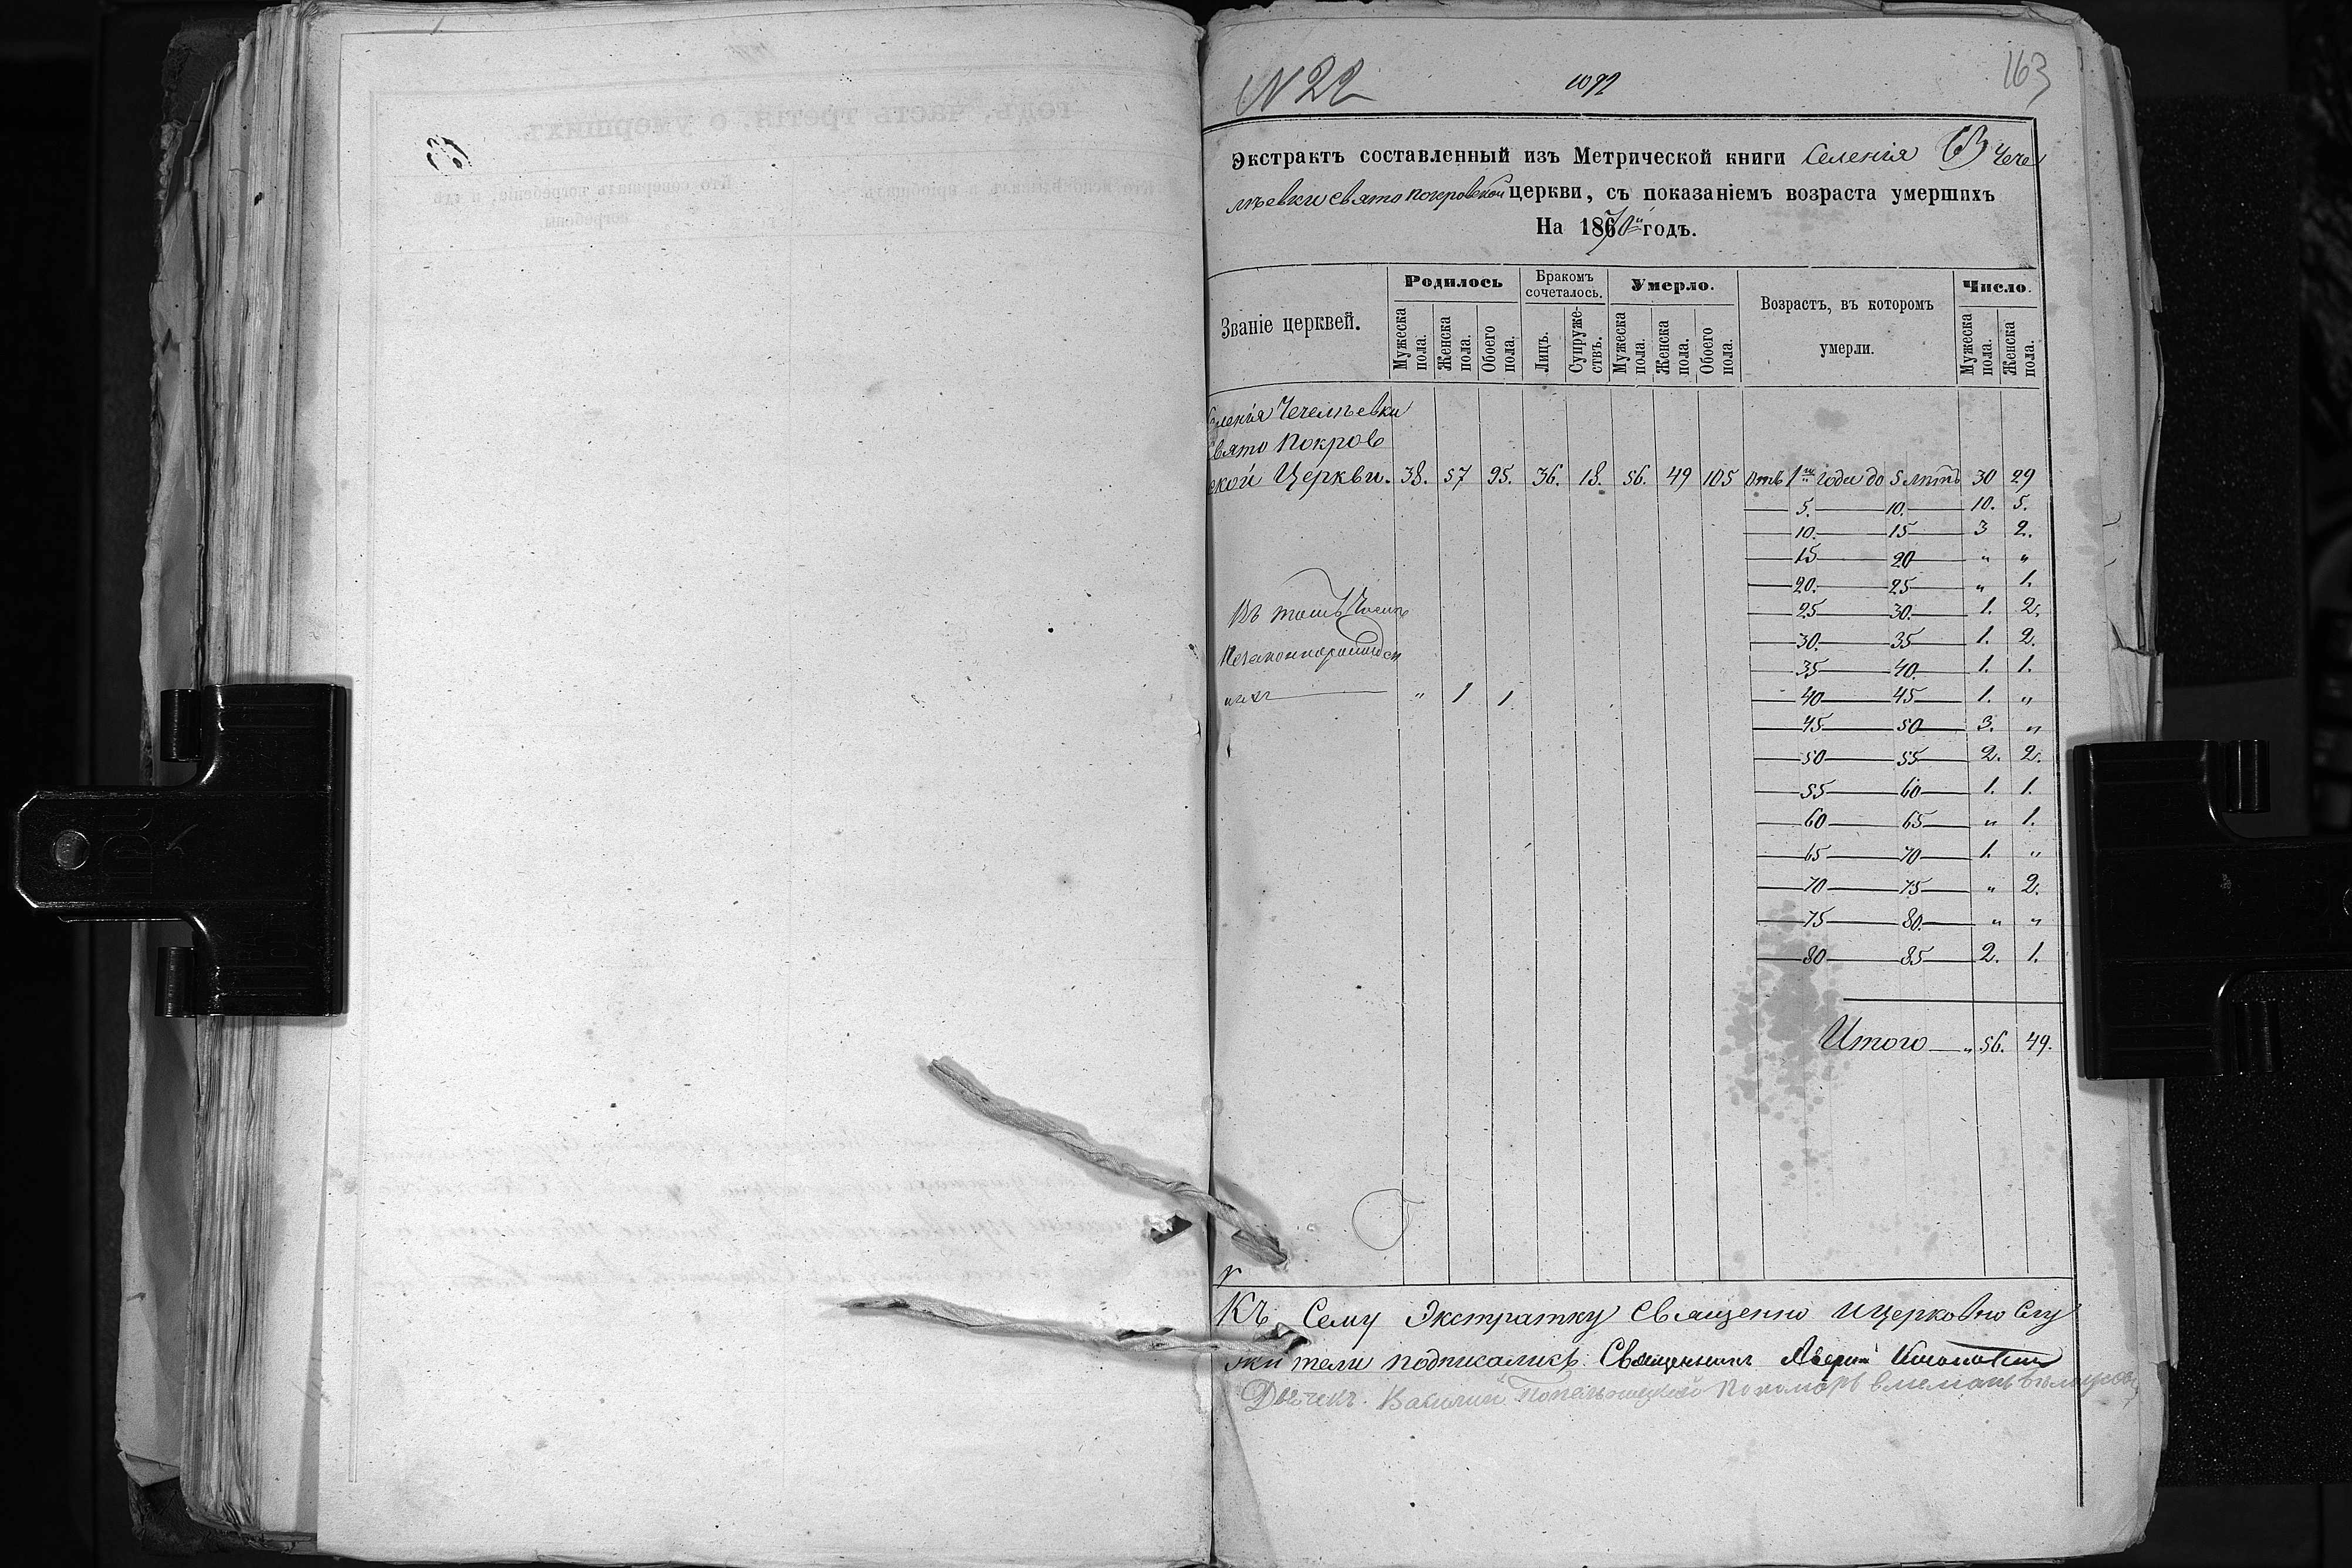 N 22
1092
163
Экстрактъ составленный изъ Метрической книги Селенія Чече
лѣевки свято покровской церкви, съ показаніемъ возраста умершихъ
На 1870й годъ.
Званіе церквей.
Родилось
Мужеска пола.
Женска пола.
Обоего пола.
Бракомъ сочеталось.
Лицъ.
Супруже-ствъ.
Умерло.
Мужеска пола.
Женска пола.
Обоего пола.
Возрастъ, въ которомъ
умерли.
Число.
Мужеска пола.
Женска пола.
Селенія Чечелѣевки
Свято Покров
ской Церкви. 38. 57 95. 36. 18. 56. 49 105 Отъ 1го года до 5 лѣтъ 30 29
5. 10. 10. 5.
10. 15 3 2.
15 20 „ „
20. 25 „ 1.
25 30. 1. 2.
30. 35 1. 2.
35 40. 1. 1.
40 45 1. „
45 50 3. „
50 55 2. 2.
55 60 1. 1.
60 65 „ 1.
65 70 1. „
70 75 „ 2.
75 80. „ „
80 85 2. 1.
Въ томъ числѣ
Незаконнорожден
ныхъ „ 1 1
Итого „ 56. 49.
Къ Сему Экстратку Священно и Церковно Слу
жители подписались. Священникъ Аверкій
Дьячекъ. Василий Пономарь